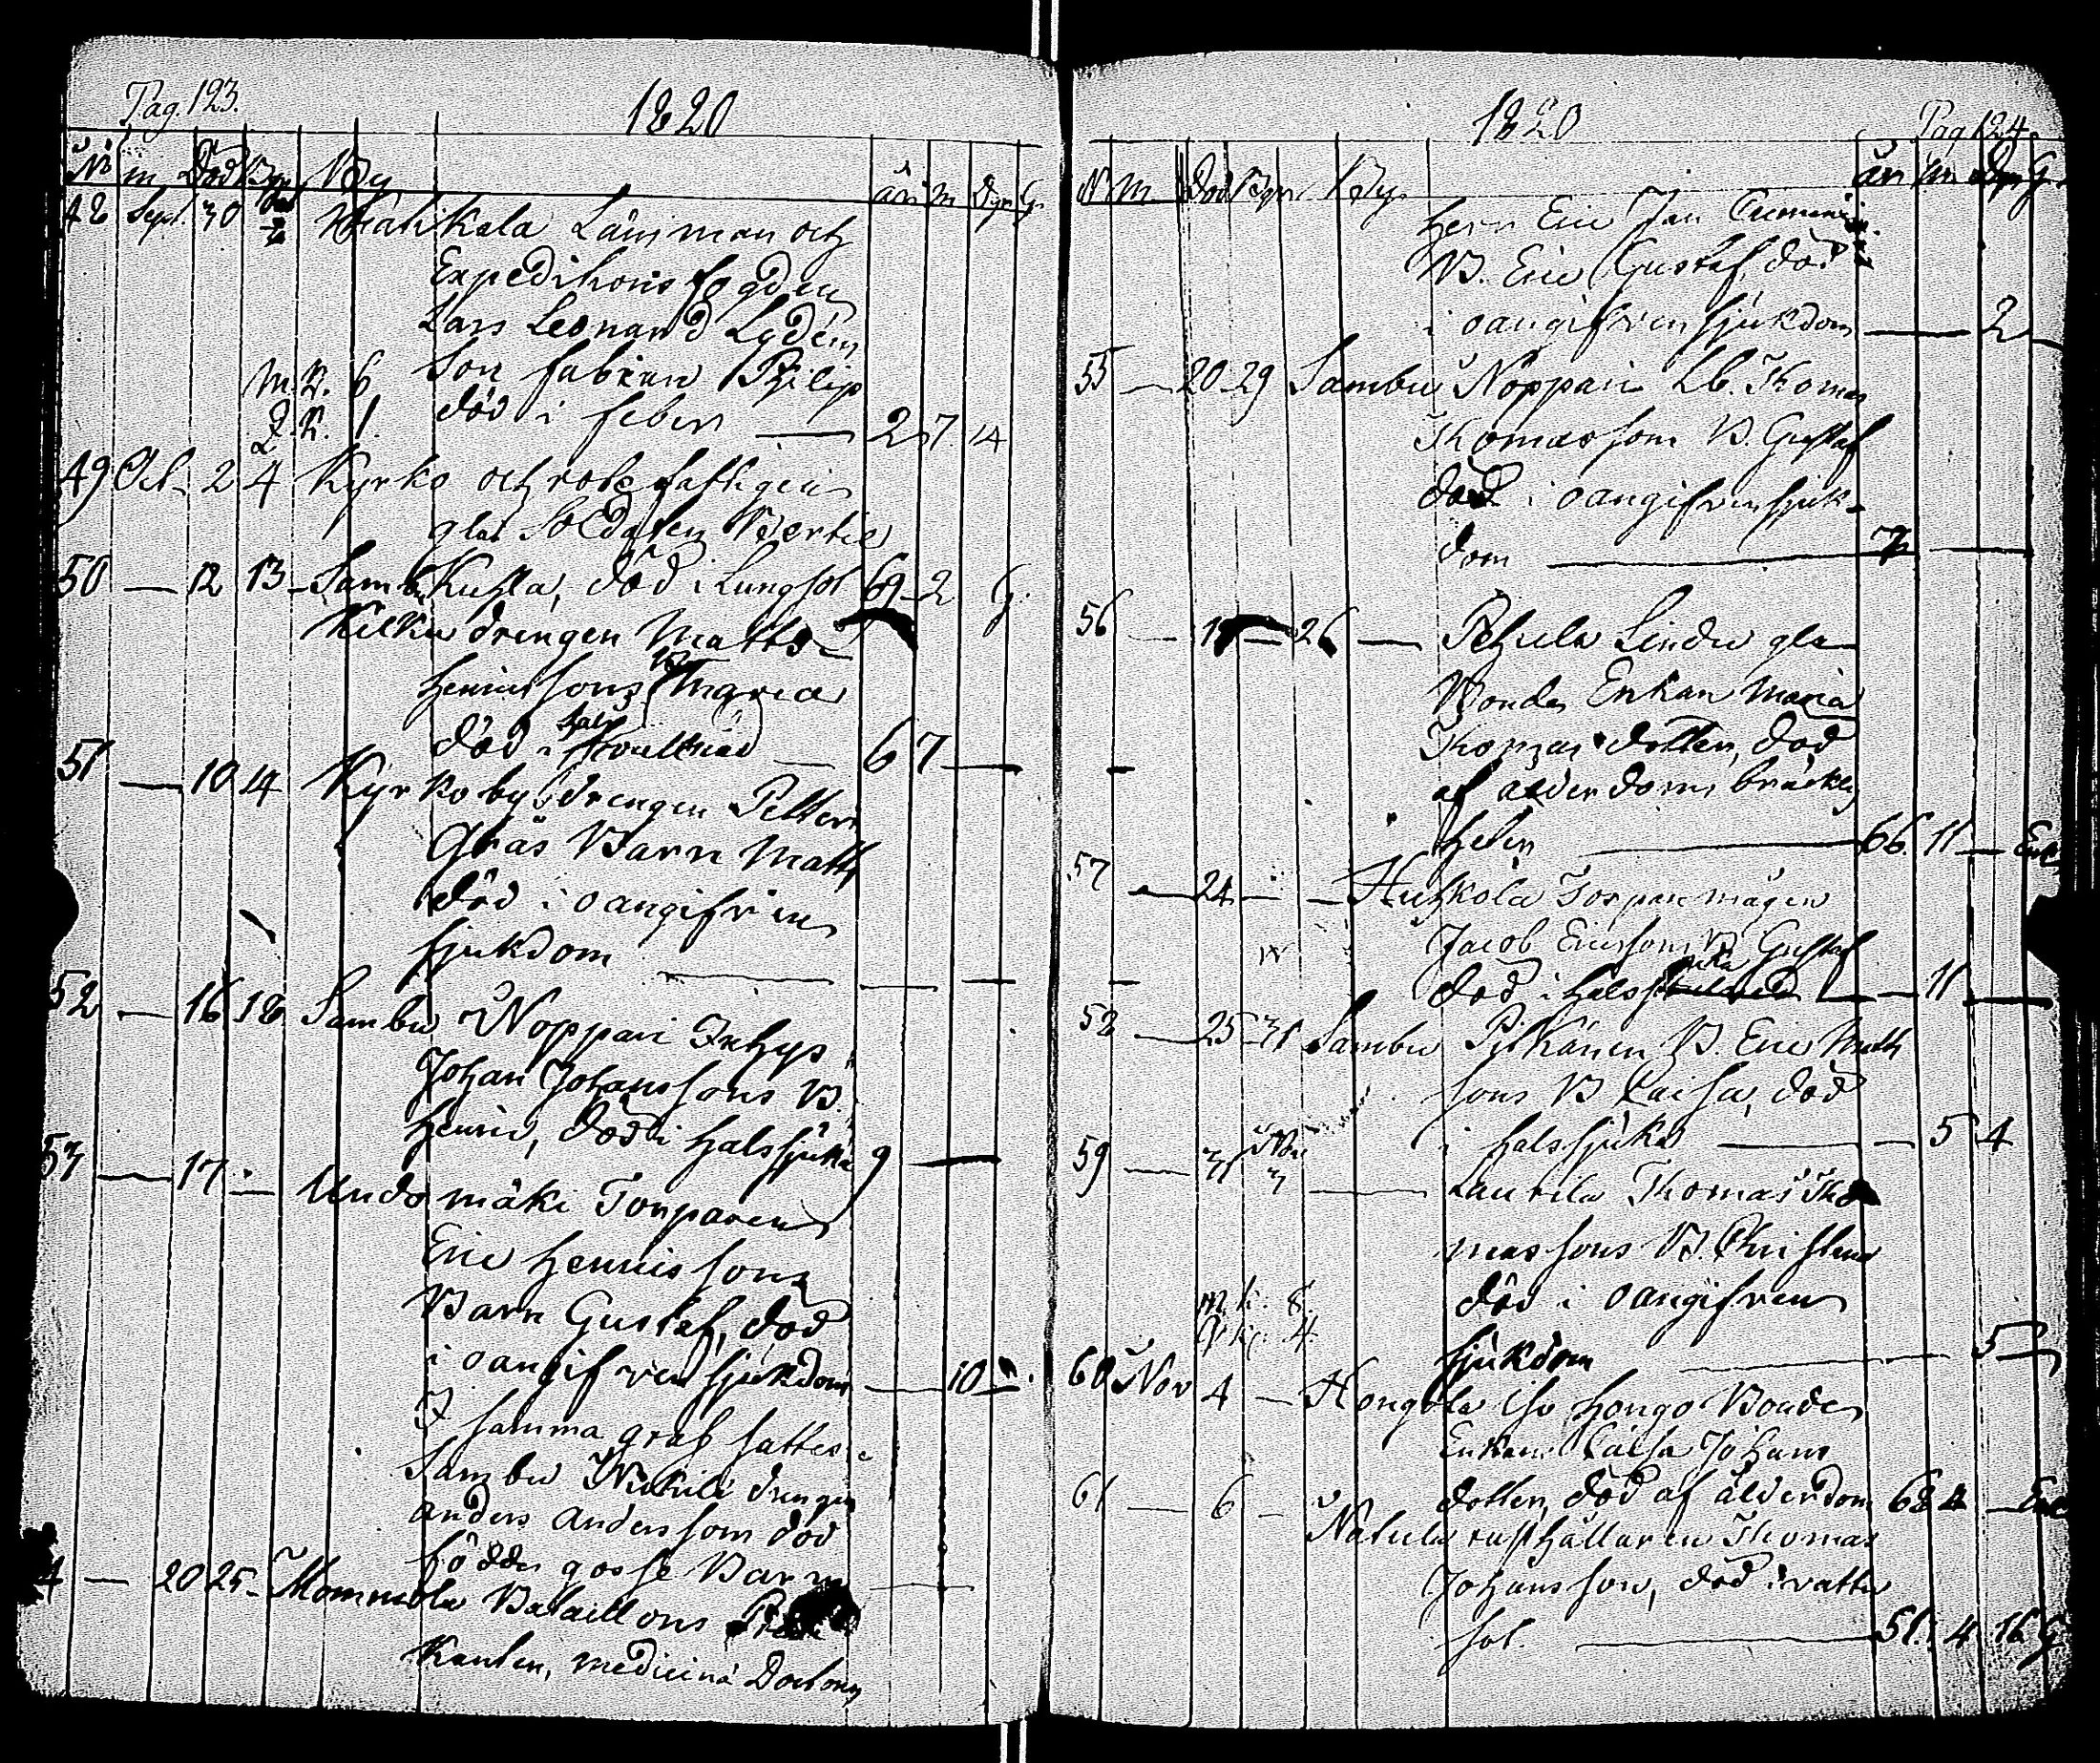 Pag. 123.
1820
No m Död Bgr By år M Dgr G.
48 Sept. 30 Länsman och
Expeditions fogden
Lars Leonard Lydéns
M.K. 6 Son Fabian Philip
Q.K. 1. död i feber — 2 7 14
49 Oct. 2 4 Kyrko och rote fattigen
gla Soldaten Bertil
50 — 12 13 Sambu Kuhla, död i Lungsot 69 2 G.
Kilku drengen Matts
Henrissons Maria
död i hals 6 7 —
51 — 10 14 Kyrkoby drengen Petter
Gräs Barn Matts
död i oangifven
sjukdom — — —
52 — 16 18 Sambu Noppari Inhys
Johan Johanssons B.
Henric, död i halssjuka 9 —
53 — 17 — Undomäki Torparens
Eric Henrissons
Barn Gustaf, död
i oangifven sjukdom — 10 —
I samma graf sattes
Sambu drengen
Anders Andersson död
födde gosse Barn — —
4 — 20 25 — Mommola Bataillons
Kanten, medicinæ Doctorn
1820
Pag 124.
N. M. Död Bgr. By. år M Dgr G.
Herr Eric Jan
B. Eric Gustaf, död
i oangifven sjukdom — 2
55 — 20 29 Sambu Noppari Lb. Thomas
Thomassons B. Gustaf
död i oangifven sjuk-
dom —
56 — 26 — Pehula Lindu gla
Bonde Enkan Maria
Thomas dotter, död
af ålderdoms bräcklig
heten — 66. 11 — Enk
57 — 24 — — Huhkola Torpare mågen
Jacob Ericssons B Gustaf
död i halssjuka — 11 —
58 — 25 31 Sambu Pitkänen B. Eric Matts
sons B Caisa, död
i halssjuka — — 5 4
59 — 31 Nov 3 — Laurila Thomas Tho
massons B. Christina
M.k. 8. död i oangifven
Q.k. 4. sjukdom — 5
60 Nov 4 — Hongola Iso Hongo Bonde
Enkan Caisa Johans
dotter, död af ålderdom 68 4 — Enk
61 — 6 — Natula rusthållaren Thomas
Johansson, död i vattu
sot. — 51. 4 16 G